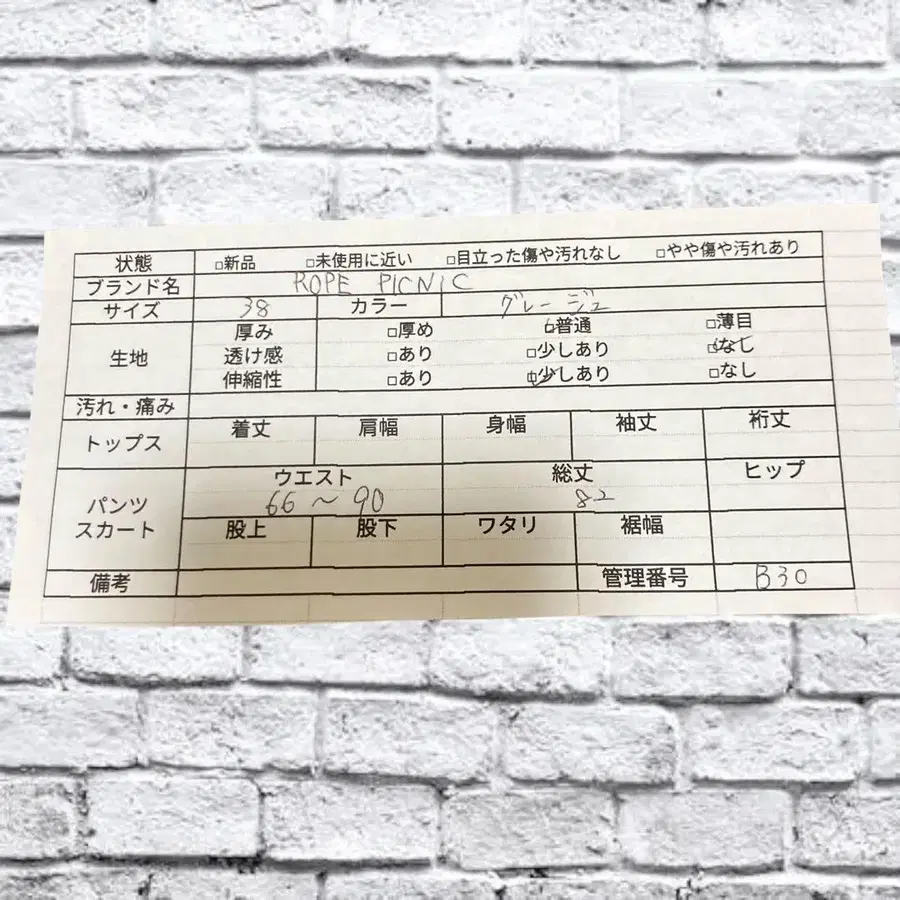 状態 □新品 □未使用に近い □目立った傷や汚れなし □やや傷や汚れあり
ブランド名 ROPE PICNIC
サイズ 38 カラー グレージュ
生地 厚み □厚め □普通 □薄目
透け感 □あり □少しあり □なし
伸縮性 □あり □少しあり □なし
汚れ・痛み
トップス 着丈 肩幅 身幅 袖丈 裄丈
パンツ スカート ウエスト 総丈 ヒップ
66～90 82
股上 股下 ワタリ 裾幅
備考 管理番号 B30